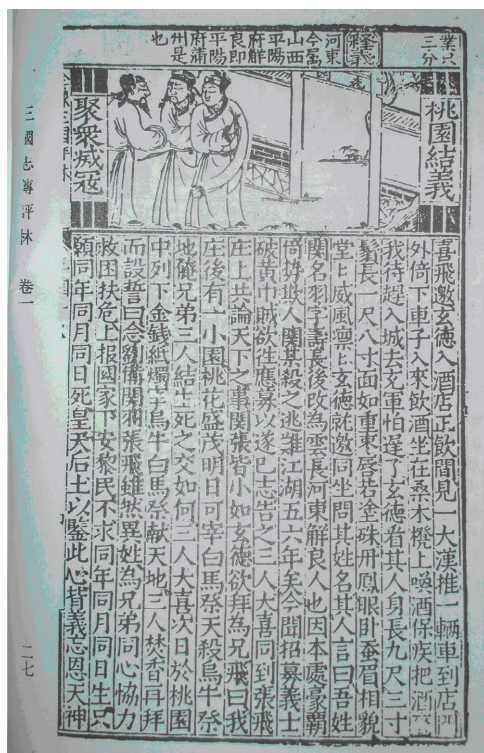 業只
三分
釋義
河東
今屬
山西
平陽
府解
良即
平陽
府蒲
州是
也
桃園結義
聚衆滅寇
喜飛邀玄德入酒店正飲間見一大漢推一輛車到店門
外倍下車子入來飲酒坐在桑木櫈上喚酒保疾把酒
我待趕入城去充軍怕遲了玄德看其人身長九尺三寸
鬚長一尺八寸面如重棗唇若塗硃丹鳳眼卧蚕眉相貌
堂〻威風凛〻玄德就邀同坐問其姓名其人言曰吾姓
關名羽字壽長後改為雲長河東解良人也因本處豪霸
倚勢欺人關某殺之逃難江湖五六年矣今聞招募義士
破黄巾賊欲往應募以遂己志告之三人大喜同到張飛
庄上共論天下之事關張皆小如玄德欲拜為兄飛曰我
庄後有一小園桃花盛茂明日可宰白馬祭天殺烏牛祭
地俺兄弟三人結生死之交如何三人大喜次日於桃園
中列下金錢紙燭宰烏牛白馬祭献天地三人焚香再拜
而設誓曰念劉備關羽張飛雖然異姓為兄弟同心協力
救困扶危上报國家下安黎民不求同年同月同日生只
願同年同月同日死皇天后土以鑒此心背義忘恩天神
三國志傳評林 卷一
二七